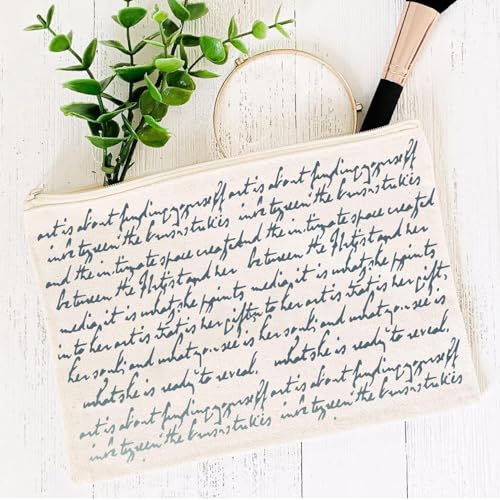 art is about finding yourself art is about finding yourself
in between the brushstrokes in between the brushstrokes
and the intimate space created nd the intimate space created
between the Artist and her between the Artist and her
media, it is what she paints media, it is what she paints
into her art is that is her gift, to her art is that is her gift,
her soul; and what you see is her soul; and what you see is
what she is ready to reveal. what she is ready to reveal.
art is about finding yourself art is about finding yourself
in between the brushstrokes in between the brushstrokes